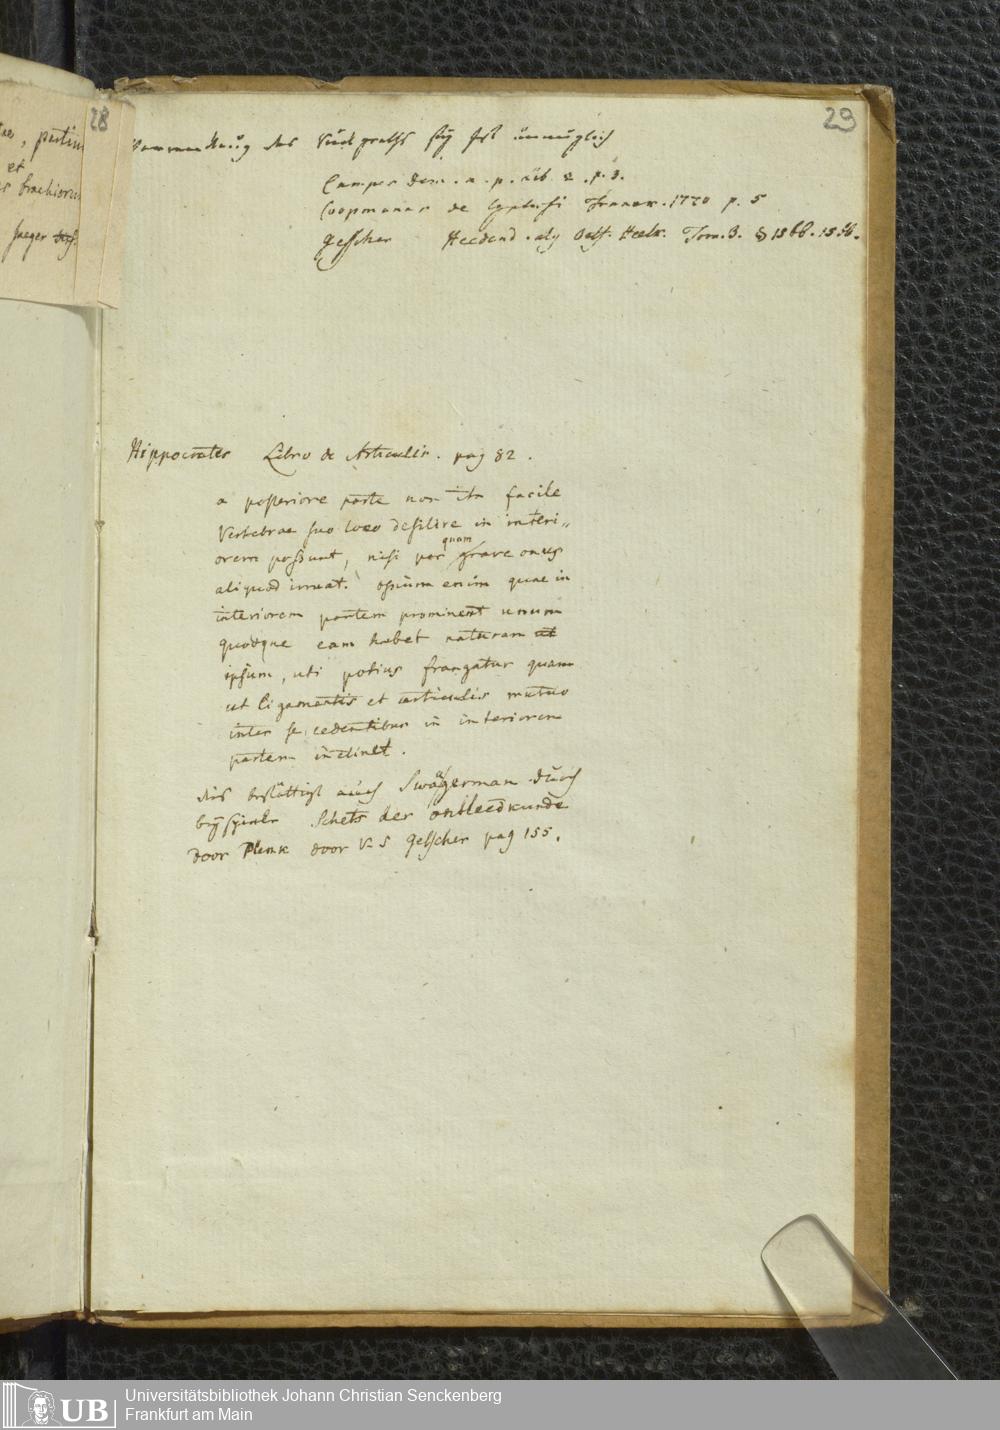 28
29
partim
et
brachiorum
Jaeger
des Rückgraths sey fast unmöglich
Camper dem. a. p. lib. 2. p. 8.
Coopmanns de Cyphosi Franek. 1770 p. 5
Gesscher Heedend. Oef. Heelk. Tom. 3. § 1566.
Hippocrates Libro de Articulis. pag 82.
a posteriore parte non ita facile
Vertebrae suo loco desilire in interi„
orem possunt, nisi per quam grave onus
aliquod irruat. ossium enim quae in
interiorem partem prominent unum
quodque eam habet naturam ut
ipsum, uti potius frangatur quam
ut ligamentis et articulis mutuo
inter se cedentibus in interiorem
partem inclinet.
dies bestättigt auch Swagerman durch
beyspiele Schets der ontleedkunde
door Plenk door V. S Gesscher pag 155.
UB Universitätsbibliothek Johann Christian Senckenberg
Frankfurt am Main